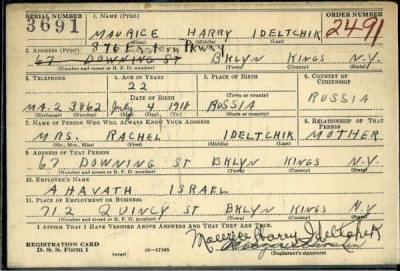 SERIAL NUMBER 1. NAME (Print) ORDER NUMBER
3691 MAURICE HARRY IDELTCHIK 2491
(First) (Middle) (Last)
876 Eastern Pkway
2. ADDRESS (Print)
67 DOWNING ST BKLYN KINGS N.Y.
(Number and street or R. F. D. number) (Town) (County) (State)
3. TELEPHONE 4. AGE IN YEARS 5. PLACE OF BIRTH 6. COUNTRY OF CITIZENSHIP
22
DATE OF BIRTH (Town or county)
MA-2 3862 July 1918 RUSSIA RUSSIA
(Exchange) (Number) (Mo.) (Day) (Yr.) (State or country)
7. NAME OF PERSON WHO WILL ALWAYS KNOW YOUR ADDRESS 8. RELATIONSHIP OF THAT PERSON
MRS. RACHEL IDELTCHIK MOTHER
(Mr., Mrs., Miss) (First) (Middle) (Last)
9. ADDRESS OF THAT PERSON
67 DOWNING ST BKLYN KINGS N.Y.
(Number and street or R. F. D. number) (Town) (County) (State)
10. EMPLOYER'S NAME
AHAVATH ISRAEL
11. PLACE OF EMPLOYMENT OR BUSINESS
712 QUINCY ST BKLYN KINGS N.Y.
(Number and street or R. F. D. number) (Town) (County) (State)
I AFFIRM THAT I HAVE VERIFIED ABOVE ANSWERS AND THAT THEY ARE TRUE.
Maurice Harry Ideltchik
REGISTRATION CARD
D. S. S. Form 1 16—17105 (Registrant's signature)